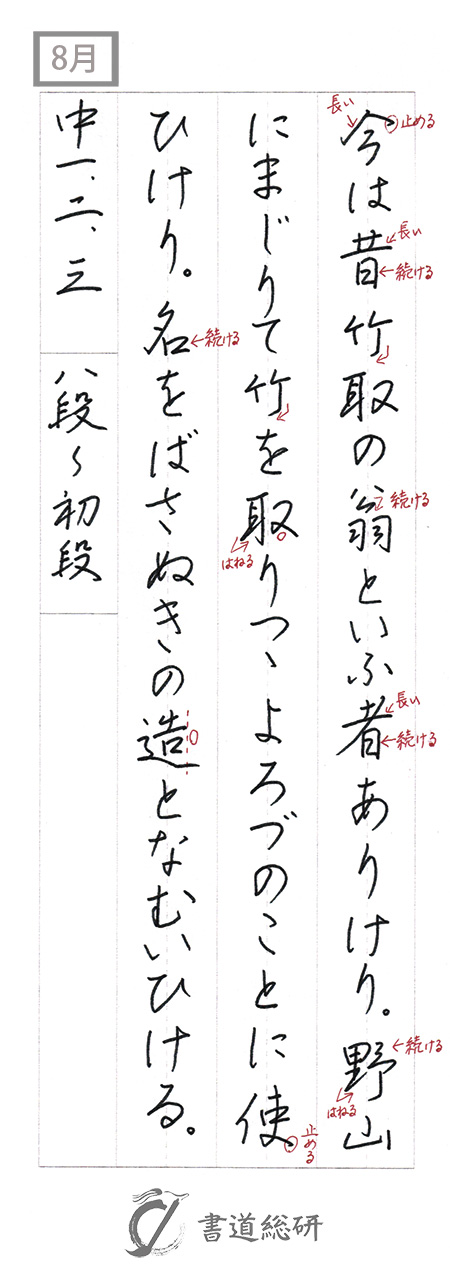 8月
今は昔竹取の翁といふ者ありけり。野山
にまじりて竹を取りつゝよろづのことに使
ひけり。名をばさぬきの造となむいひける。
中一、二、三
八段〜初段
長い
止める
長い
続ける
続ける
長い
続ける
続ける
はねる
はねる
止める
続ける
書道総研